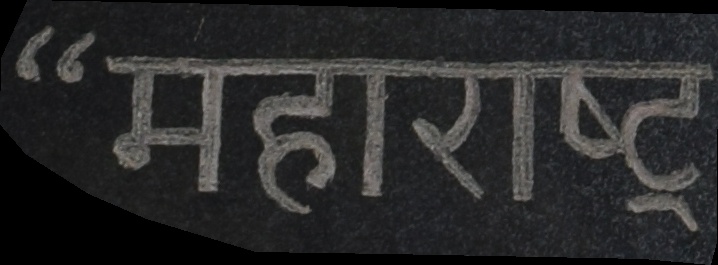 “महाराष्ट्र